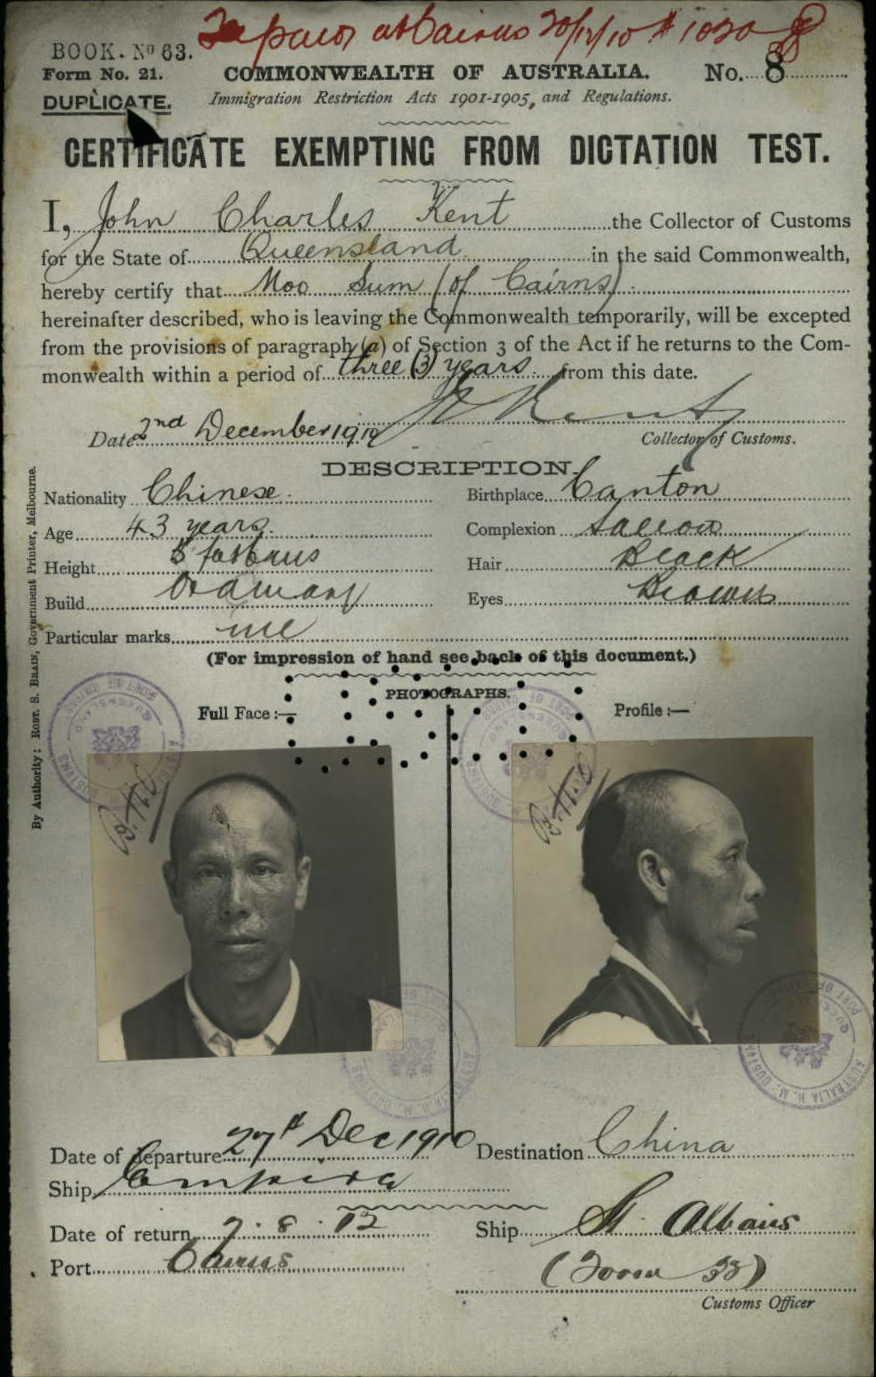 at Cairns 20/12/10 # 1030
BOOK. No 63.
Form No. 21.
COMMONWEALTH OF AUSTRALIA.
No. 8
DUPLICATE.
Immigration Restriction Acts 1901-1905, and Regulations.
CERTIFICATE EXEMPTING FROM DICTATION TEST.
I, John Charles Kent the Collector of Customs
for the State of Queensland in the said Commonwealth,
hereby certify that Moo Sum (of Cairns)
hereinafter described, who is leaving the Commonwealth temporarily, will be excepted
from the provisions of paragraph (a) of Section 3 of the Act if he returns to the Com-
monwealth within a period of three (3) years from this date.
Kent
Date 2nd December 1910 Collector of Customs.
DESCRIPTION.
Nationality Chinese. Birthplace Canton
Age 43 years. Complexion Sallow
Height 5 feet Hair Black
Build Ordinary Eyes Brown
Particular marks
(For impression of hand see back of this document.)
PHOTOGRAPHS.
Full Face :— Profile :—
By Authority: ROBT. S. BRAIN, Government Printer, Melbourne.
Date of departure 27th Dec 1910 Destination China
Ship Empire
Date of return 7.8.12 Ship St. Albans
Port Cairns (Form 33)
Customs Officer